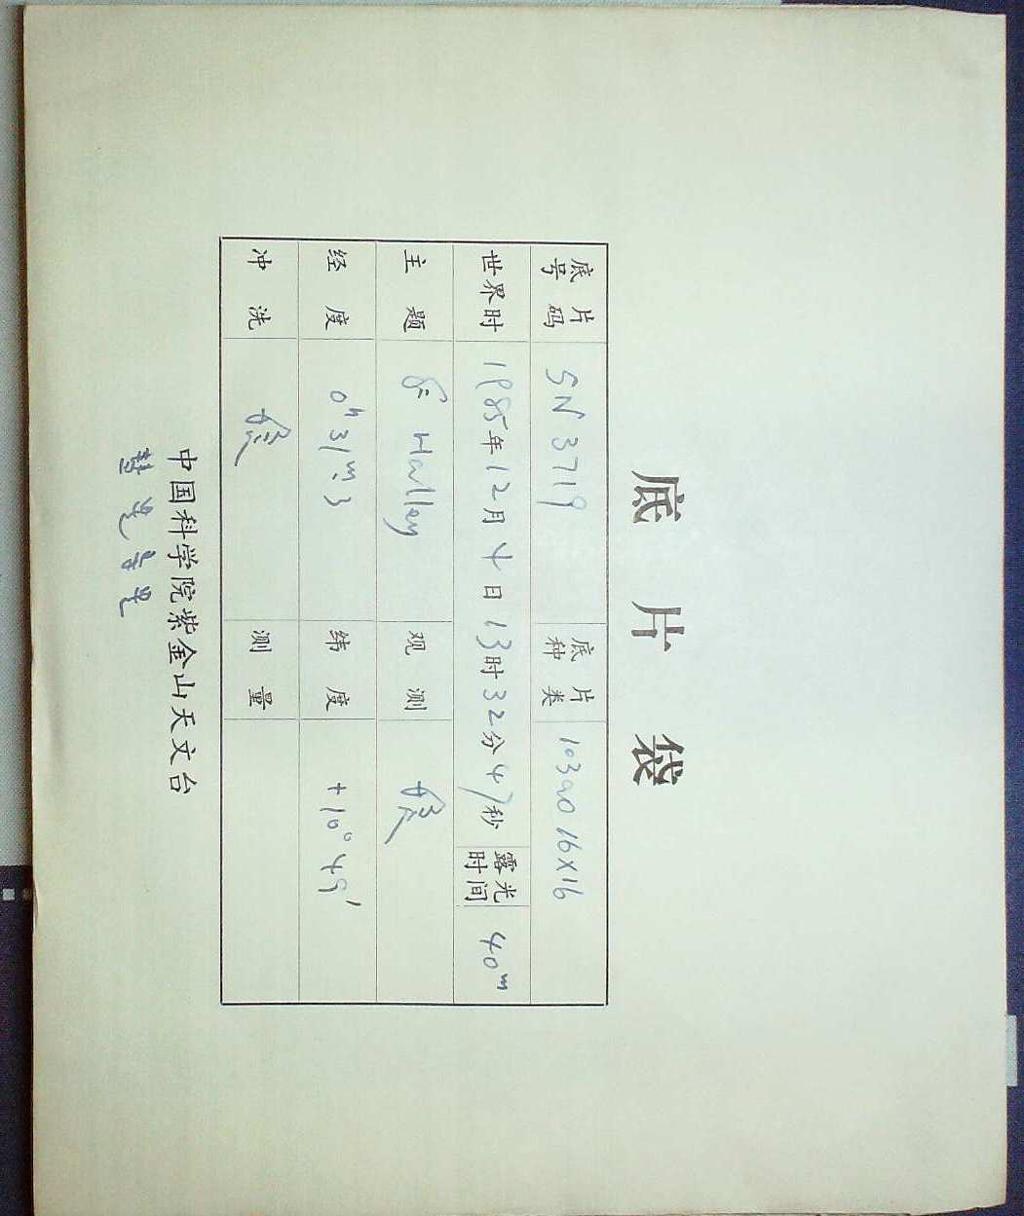 底片袋
底片号码 SN 3719 底片种类 103aO 16X16
世界时 1985年12月4日13时32分47秒 露光时间 40m
主题 Halley 观测
经度 0h31m.3 纬度 +10°49′
冲洗 测量
中国科学院紫金山天文台
彗